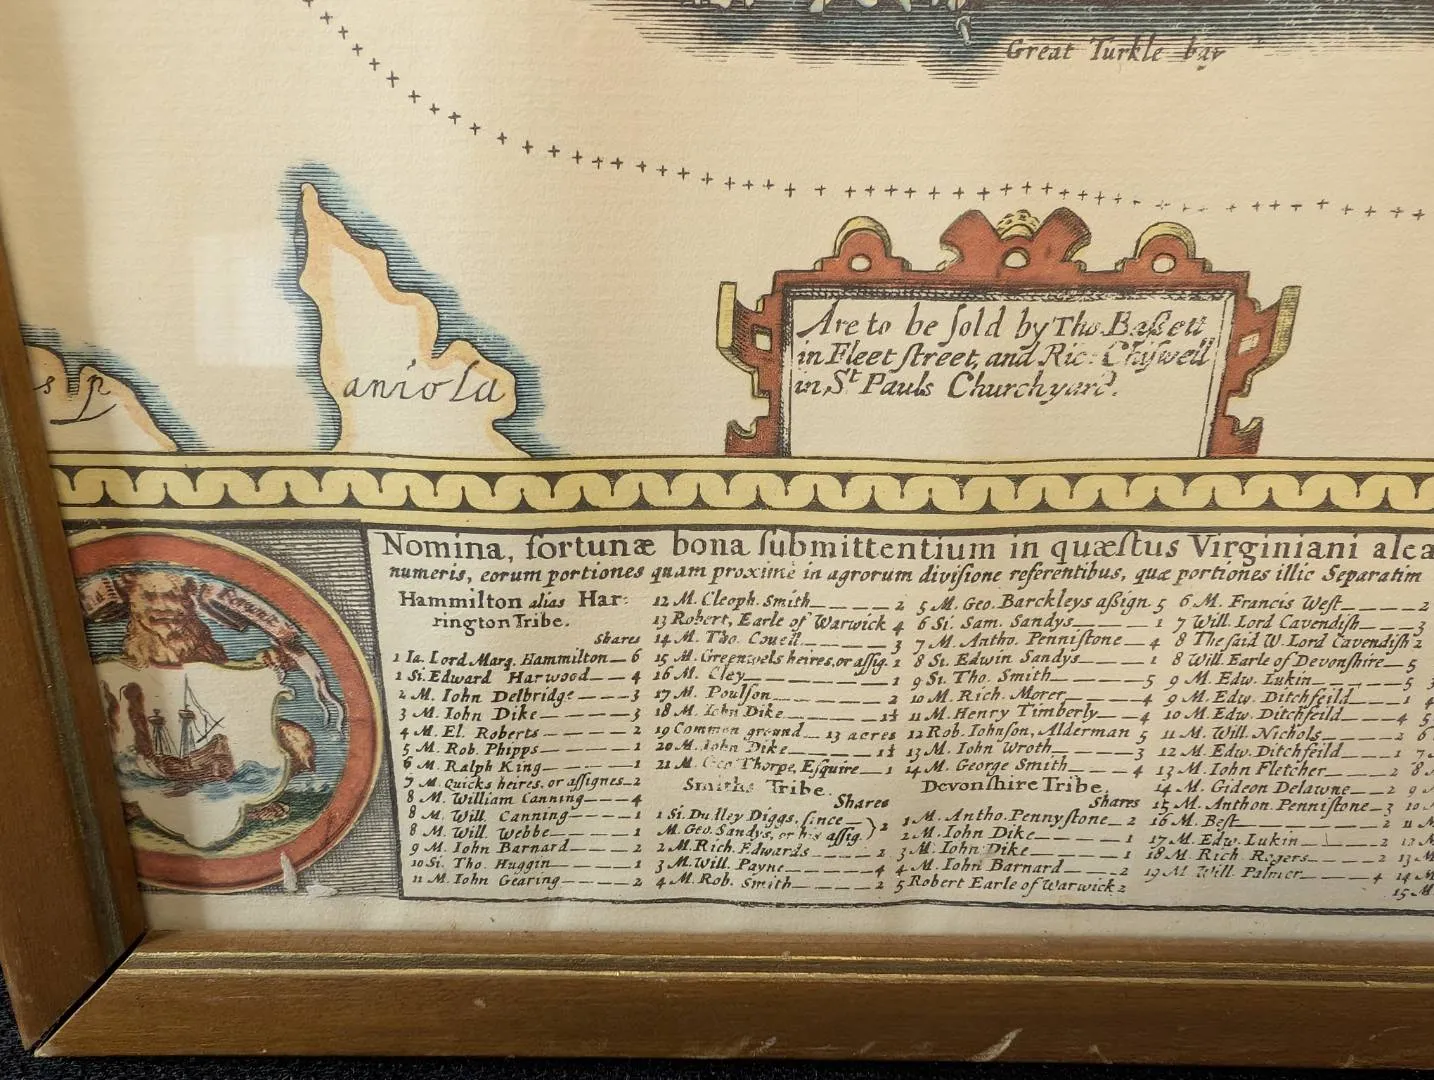 Great Turkle bay
s p
aniola
Are to be ſold by Tho. Baſſett
in Fleet ſtreet, and Ric: Chiſwell
in St Pauls Churchyard.
Nomina, fortunæ bona ſubmittentium in quæſtus Virginiani alea
numeris, eorum portiones quam proximè in agrorum diviſione referentibus, quæ portiones illic Separatim
Hammilton alias Har:
rington Tribe.
Shares
1 Ia. Lord Marq. Hammilton 6
1 Si. Edward Harwood 4
2 M. Iohn Delbridge 3
3 M. Iohn Dike 3
4 M. El. Roberts 2
5 M. Rob. Phipps 1
6 M. Ralph King 1
7 M. Quicks heires, or aſſignes 2
8 M. William Canning 4
8 M. Will. Canning 1
8 M. Will. Webbe 1
9 M. Iohn Barnard 2
10 Si. Tho. Huggin 1
11 M. Iohn Gearing 2
12 M. Cleoph. Smith 2
13 Robert, Earle of Warwick 4
14 M. Tho. Couell 3
15 M. Greenwels heires, or aſſig. 1
16 M. Cley 1
17 M. Poulſon 2
18 M. Iohn Dike 1½
19 Common ground 13 acres
20 M. Iohn Dike 1½
21 M. Geo Thorpe, Eſquire 1
Smiths Tribe.
Shares
1 Si. Dudley Diggs, ſince
M. Geo. Sandys, or his aſſig. } 2
2 M. Rich. Edwards 2
3 M. Will. Payne 4
4 M. Rob. Smith 2
5 M. Geo. Barckleys aſſign 5
6 Si. Sam. Sandys 1
7 M. Antho. Penniſtone 4
8 St. Edwin Sandys 5
9 Si. Tho. Smith 5
10 M. Rich. Morer 4
11 M. Henry Timberly 4
12 Rob. Iohnſon, Alderman 5
13 M. Iohn Wroth 3
14 M. George Smith 4
Devonſhire Tribe.
Shares
1 M. Antho. Pennyſtone 2
2 M. Iohn Dike 1
3 M. Iohn Dike 1
4 M. Iohn Barnard 2
5 Robert Earle of Warwick 2
6 M. Francis Weſt 2
7 Will. Lord Cavendiſh 3
8 The ſaid W. Lord Cavendiſh 2
8 Will. Earle of Devonſhire 5
9 M. Edw. Lukin 5
9 M. Edw. Ditchfeild 1
10 M. Edw. Ditchfeild 4
11 M. Will. Nichols 2
12 M. Edw. Ditchfeild 1
13 M. Iohn Fletcher 2
14 M. Gideon Delawne 2
15 M. Anthon. Penniſtone 3
16 M. Beſt 2
17 M. Edw. Lukin 2
18 M. Rich. Rogers 2
19 M. Will. Palmer 4